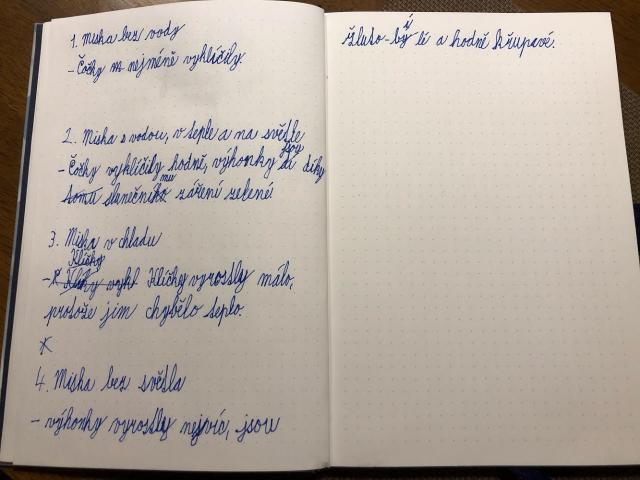 1. Miska bez vody
- Čočky nejméně vyklíčily.
2. Miska s vodou, v teple a na světle
jsou
- Čočky vyklíčily hodně, výhonky díky
mu
tomu slunečního záření zelené
3. Miska v chladu
Klíčky
- Klíčky vyrostly málo,
protože jim chybělo teplo.
4. Miska bez světla
- výhonky vyrostly nejvíc, jsou
í
žluto-bylé a hodně křupavé.